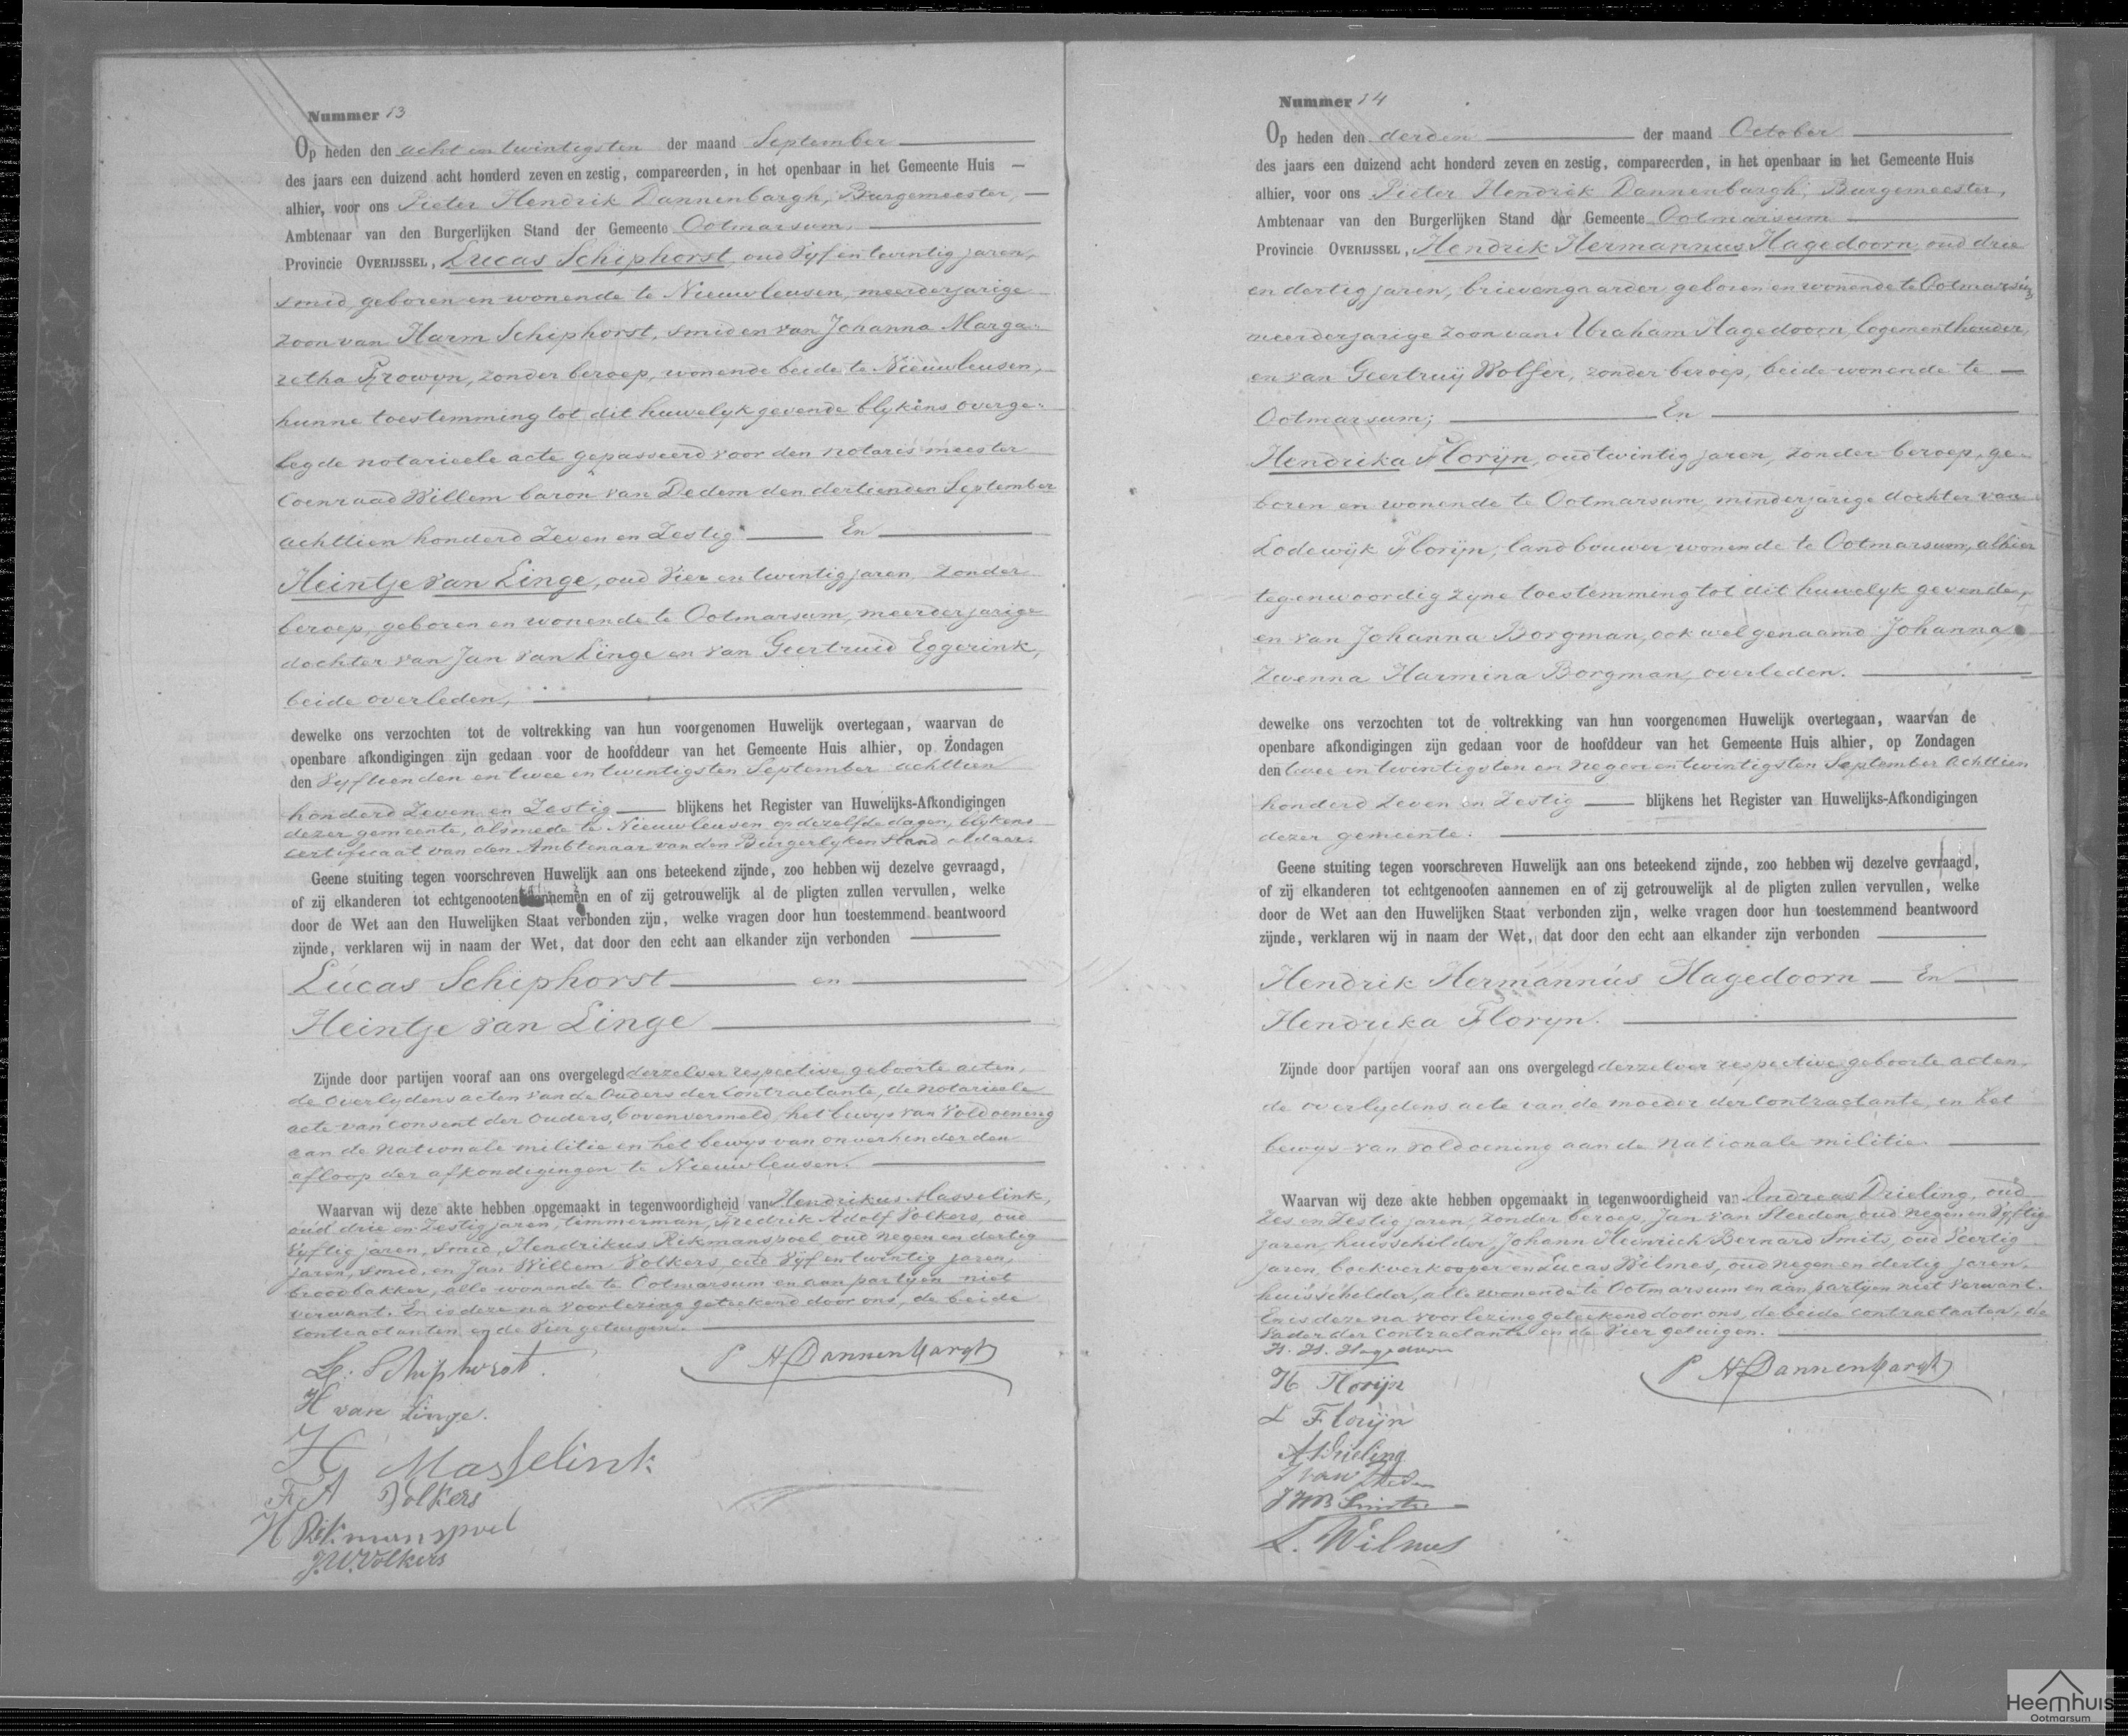 Nummer 13
Op heden den acht en twintigsten der maand September
des jaars een duizend acht honderd zeven en zestig, compareerden, in het openbaar in het Gemeente Huis
alhier, voor ons Pieter Hendrik Dannenbargh, Burgemeester,
Ambtenaar van den Burgerlijken Stand der Gemeente Ootmarsum,
Provincie OVERIJSSEL, Lucas Schiphorst, oud vyf en twintig jaren,
smid, geboren en wonende te Nieuwleusen, meerderjarige
zoon van Harm Schiphorst, smid en van Johanna Marga-
retha Frowyn, zonder beroep, wonende beide te Nieuwleusen,
hunne toestemming tot dit huwelyk gevende blykens overge-
legde notarieele acte gepasseerd voor den notaris meester
Coenraad Willem baron van Dedem den dertienden September
achttien honderd zeven en zestig En
Heintje van Linge, oud vier en twintig jaren, zonder
beroep, geboren en wonende te Ootmarsum, meerderjarige
dochter van Jan van Linge en van Geertruid Eggerink,
beide overleden,
dewelke ons verzochten tot de voltrekking van hun voorgenomen Huwelijk overtegaan, waarvan de
openbare afkondigingen zijn gedaan voor de hoofddeur van het Gemeente Huis alhier, op Zondagen
den vyftienden en twee en twintigsten September achttien
honderd zeven en zestig blijkens het Register van Huwelijks-Afkondigingen
dezer gemeente, alsmede te Nieuwleusen op dezelfde dagen, blykens
certificaat van den Ambtenaar van den Burgerlyken Stand aldaar.
Geene stuiting tegen voorschreven Huwelijk aan ons beteekend zijnde, zoo hebben wij dezelve gevraagd,
of zij elkanderen tot echtgenooten aannemen en of zij getrouwelijk al de pligten zullen vervullen, welke
door de Wet aan den Huwelijken Staat verbonden zijn, welke vragen door hun toestemmend beantwoord
zijnde, verklaren wij in naam der Wet, dat door den echt aan elkander zijn verbonden
Lucas Schiphorst en
Heintje van Linge
Zijnde door partijen vooraf aan ons overgelegd derzelver respective geboorte acten,
de overlydens acten van de Ouders der Contractante, de notarieele
acte van consent der ouders, bovenvermeld, het bewys van voldoening
aan de nationale militie en het bewys van onverhinderden
afloop der afkondigingen te Nieuwleusen.
Waarvan wij deze akte hebben opgemaakt in tegenwoordigheid van Hendrikus Masselink,
oud drie en zestig jaren, timmerman, Fredrik Adolf Volkers, oud
vyftig jaren, smid, Hendrikus Rikmanspoel oud negen en dertig
jaren, smid, en Jan Willem Volkers, oud vyf en twintig jaren,
broodbakker, alle wonende te Ootmarsum en aan partyen niet
verwant. En is deze na voorlezing geteekend door ons, de beide
contractanten en de vier getuigen.
L: Schiphorst.
P H Dannenbargh
H van Linge.
H Masselink
F A Volkers
H Rikmanspoel
J.W. Volkers
Nummer 14
Op heden den derden der maand October
des jaars een duizend acht honderd zeven en zestig, compareerden, in het openbaar in het Gemeente Huis
alhier, voor ons Pieter Hendrik Dannenbargh, Burgemeester,
Ambtenaar van den Burgerlijken Stand der Gemeente Ootmarsum
Provincie OVERIJSSEL, Hendrik Hermannus Hagedoorn, oud drie
en dertig jaren, brievengaarder, geboren en wonende te Ootmarsum
meerderjarige zoon van Abraham Hagedoorn, logementhouder,
en van Geertruij Wolfer, zonder beroep, beide wonende te
Ootmarsum; En
Hendrika Florijn, oud twintig jaren, zonder beroep, ge-
boren en wonende te Ootmarsum, minderjarige dochter van
Lodewijk Florijn, landbouwer, wonende te Ootmarsum, alhier
tegenwoordig zyne toestemming tot dit huwelyk gevende,
en van Johanna Borgman, ook wel genaamd Johanna
Zwenna Harmina Borgman, overleden.
dewelke ons verzochten tot de voltrekking van hun voorgenomen Huwelijk overtegaan, waarvan de
openbare afkondigingen zijn gedaan voor de hoofddeur van het Gemeente Huis alhier, op Zondagen
den twee en twintigsten en negen en twintigsten September achttien
honderd zeven en zestig blijkens het Register van Huwelijks-Afkondigingen
dezer gemeente.
Geene stuiting tegen voorschreven Huwelijk aan ons beteekend zijnde, zoo hebben wij dezelve gevraagd,
of zij elkanderen tot echtgenooten aannemen en of zij getrouwelijk al de pligten zullen vervullen, welke
door de Wet aan den Huwelijken Staat verbonden zijn, welke vragen door hun toestemmend beantwoord
zijnde, verklaren wij in naam der Wet, dat door den echt aan elkander zijn verbonden
Hendrik Hermannus Hagedoorn En
Hendrika Floryn.
Zijnde door partijen vooraf aan ons overgelegd derzelver respective geboorte acten,
de overlydens acte van de moeder der Contractante, en het
bewys van voldoening aan de nationale militie
Waarvan wij deze akte hebben opgemaakt in tegenwoordigheid van Andreas Drieling, oud
zes en zestig jaren, zonder beroep, Jan van Steeden, oud negen en vyftig
jaren, huisschilder, Johann Heinrich Bernard Smits, oud veertig
jaren, boekverkooper en Lucas Wilmes, oud negen en dertig jaren,
huisschilder, alle wonende te Ootmarsum en aan partyen niet verwant.
En is deze na voorlezing geteekend door ons, de beide contractanten, de
vader der contractante en de vier getuigen.
H. H. Hagedoorn
P H Dannenbargh
H Florijn
L Florijn
A Drieling
J van Steden
J H B Smits
L. Wilmes
Heemhuis
Ootmarsum